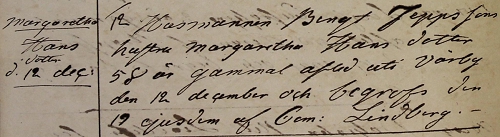 Margaretha
Hans
dotter
d. 12 dec:
12 Husmannen Bengt Jepps sons
hustru Margaretha Hans dotter
58 år gammal afled uti Wärby
den 12 december och begrofs den
19 ejusdem af Com: Lindberg. -